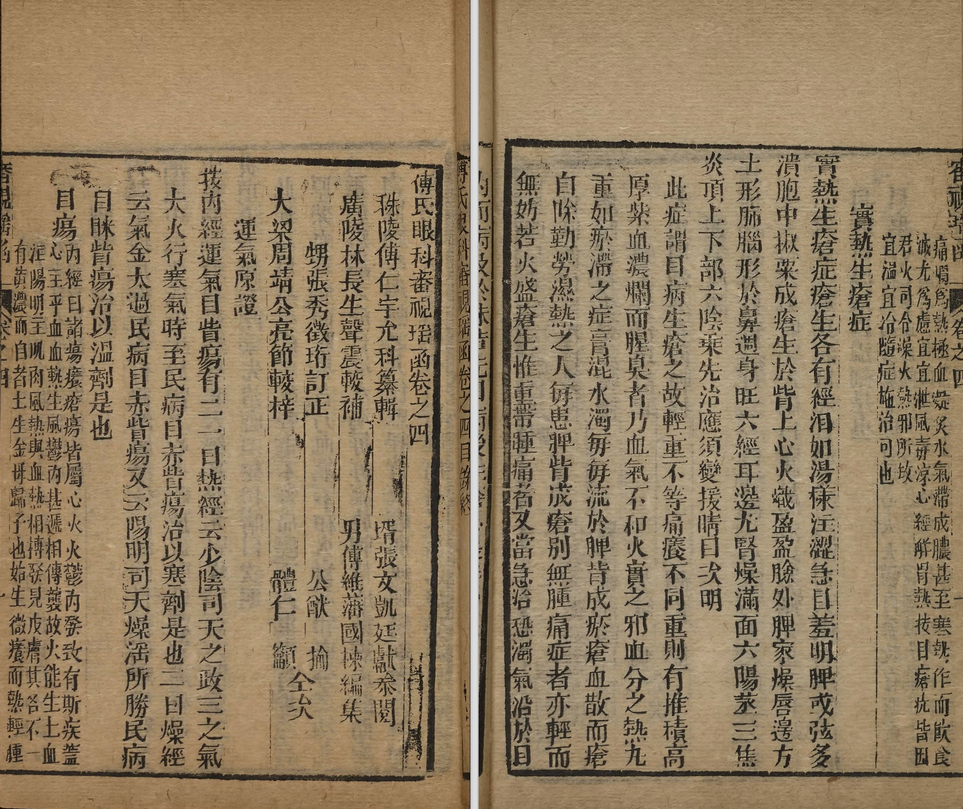 審視瑤函 卷之四
痛嘴爲熱極血凝炙水氣滯成膿甚至寒熱作而飲食
誠尤爲慮宜宜泄風毒淨心經解胃熱按目瘡疣皆因
君火司令燥火熱邪所致
宜溫宜冷隨症施治可也
實熱生瘡症
實熱生瘡症瘡生各有經淚如湯沫汪澀急目羞明脾或弦多
潰胞中椒粟成瘡生於眥上心火熾盈盈臉外脾家燥唇邊方
土形肺腦形於鼻週身旺六經耳邊尤腎燥滿面六陽蒸三焦
炎頂上下部六陰乘先治應須變援睛目次明
此症謂目病生瘡之故輕重不等痛癢不同重則有堆積高
原紫血濃爛而腥臭者乃血氣不和火實之邪血分之熱尤
重如瘀滯之症膏混水濁每每流於脾眥成瘀瘡血散而瘡
自除勤勞濕熱之人每患脾眥成瘡別無腫痛症者亦輕而
無妨若火盛瘡生惟重帶腫痛者又當急治恐濁氣沿於目
傅氏眼科審視瑤函卷之四
秣陵傅仁宇允科纂輯 壻張文凱廷獻參閱
廣陵林長生聲震較補 男傅維藩國棟編集
甥張秀徵珩訂正 公猷 揄
大梁周靖公亮節較梓 體仁 籲 仝次
運氣原證
按內經運氣目眥瘍有二一曰熱經云少陰司天之政三之氣
大火行寒氣時至民病目赤眥瘍治以寒劑是也二曰燥經
云氣金太過民病目赤眥瘍又云陽明司天燥淫所勝民病
目眛眥瘍治以溫劑是也
目瘍 內經曰諸瘍癢瘡瘍皆屬心火火鬱內發致有斯疾蓋
心主乎血血熱生風鬱內甚遞相傳襲故火能生土血
淫陽明主肌肉風熱與血熱相摶發見皮膚其名不一
有黃濃而白者土生金母歸子也始生微癢而熱輕腫